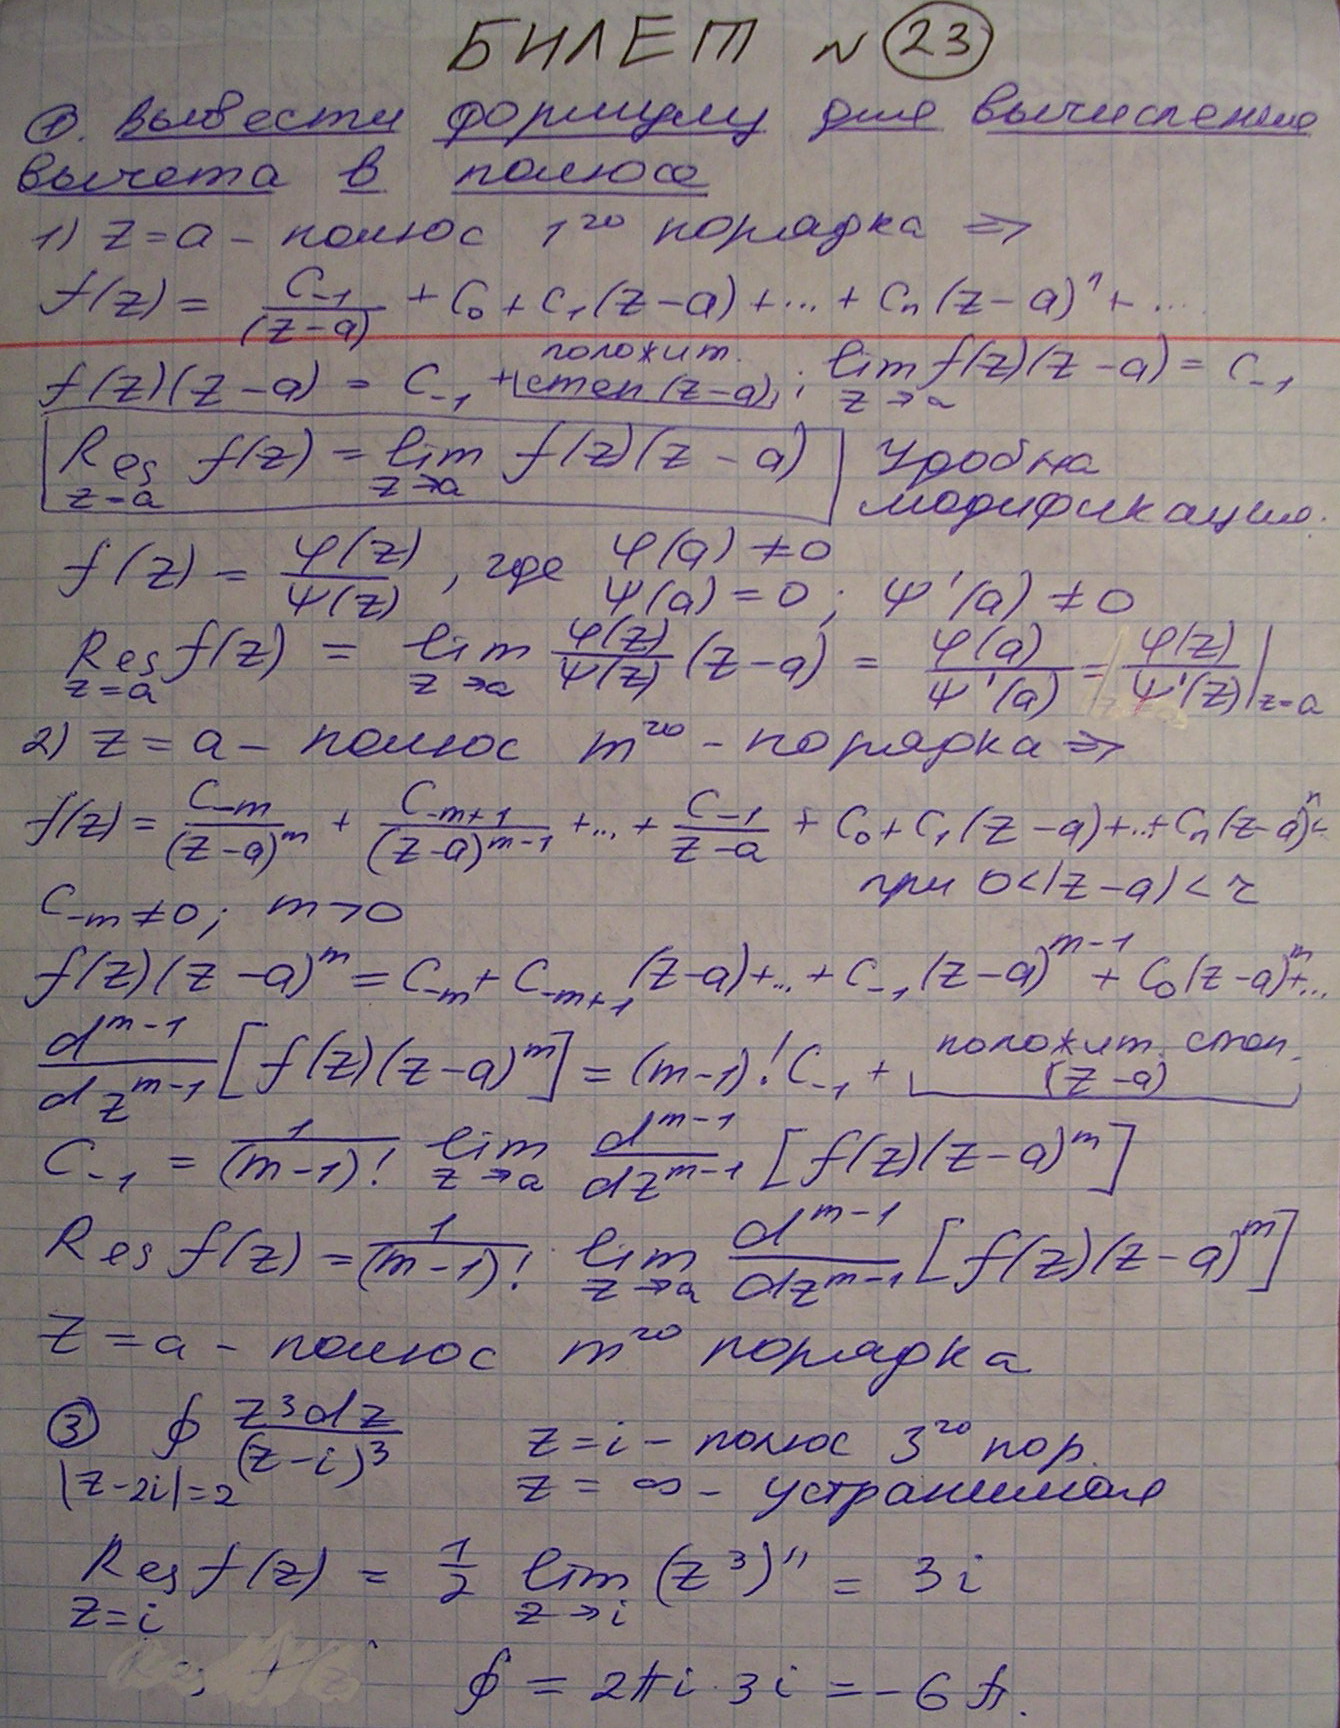 БИЛЕТ N 23
①. Вывести формулу для вычисления
вычета в полюсе
1) z = a – полюс 1го порядка ⇒
f(z) = C₋₁/(z–a) + C₀ + C₁(z–a) + ... + Cₙ(z–a)ⁿ + ...
f(z)(z–a) = C₋₁ + положит. степ (z–a); lim_{z→a} f(z)(z–a) = C₋₁
Res_{z=a} f(z) = lim_{z→a} f(z)(z–a) Удобна
модификация.
f(z) = φ(z)/ψ(z), где φ(a) ≠ 0
ψ(a) = 0; ψ'(a) ≠ 0
Res_{z=a} f(z) = lim_{z→a} φ(z)/ψ(z) (z–a) = φ(a)/ψ'(a) = φ(z)/ψ'(z)|_{z=a}
2) z = a – полюс mго – порядка ⇒
f(z) = C₋ₘ/(z–a)^m + C₋ₘ₊₁/(z–a)^{m–1} + ... + C₋₁/(z–a) + C₀ + C₁(z–a) + ... + Cₙ(z–a)ⁿ +
при 0<|z–a)<r
C₋ₘ ≠ 0; m>0
f(z)(z–a)^m = C₋ₘ + C₋ₘ₊₁(z–a) + ... + C₋₁(z–a)^{m–1} + C₀(z–a)^m + ...
d^{m–1}/dz^{m–1} [f(z)(z–a)^m] = (m–1)! C₋₁ + положит. степ. (z–a)
C₋₁ = 1/(m–1)! lim_{z→a} d^{m–1}/dz^{m–1} [f(z)(z–a)^m]
Res f(z) = 1/(m–1)! lim_{z→a} d^{m–1}/dz^{m–1} [f(z)(z–a)^m]
z = a – полюс mго порядка
③ ∮_{|z–2i|=2} z³dz/(z–i)³ z = i – полюс 3го пор.
z = ∞ – устранимая
Res_{z=i} f(z) = 1/2 lim_{z→i} (z³)'' = 3i
∮ = 2πi · 3i = –6π.